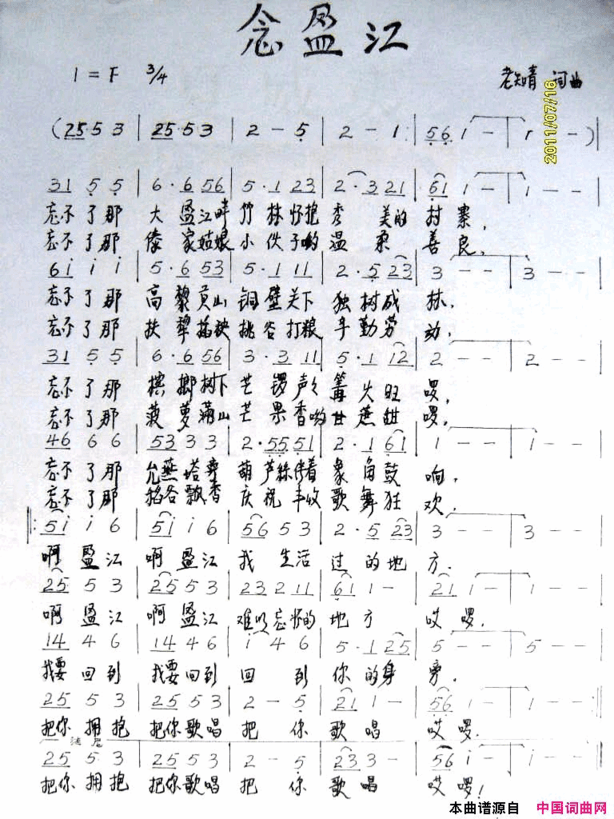 念盈江
1=F 3/4 老知青 词曲
2011/07/16
(25·5 3 | 25·5 3 | 2 - 5 | 2 - 1 : 56 1 - | 1 - - )
31 5 5 | 6·6 56 | 5·1 23 | 2·3 21 | 61 1 - | 1 - -
忘不了那 大盈江畔 竹林怀抱 秀美的村寨,
忘不了那 傣家姑娘 小伙子哟 温柔善良,
61 i i | 5·6 53 | 5·1 11 | 2·5 23 | 3 - - | 3 - -
忘不了那 高黎贡山 铜壁关下 独树成林,
忘不了那 扶犁插秧 挑谷打粮 手勤劳动,
31 5 5 | 6·6 56 | 3·3 11 | 5·1 12 | 2 - - | 2 - -
忘不了那 槟榔树下 芒锣声声 篝火旺啰,
忘不了那 菠萝满山 芒果香哟 甘蔗甜啰,
46 6 6 | 53 3 3 | 2·55 51 | 2·1 61 | 1 - - | 1 - -
忘不了那 允燕塔旁 葫芦丝伴着 象角鼓响,
忘不了那 稻谷飘香 庆祝丰收 歌舞狂欢.
5i i 6 | 5i i 6 | 56 5 3 | 2·5 23 | 3 - - | 3 - -
啊盈江 啊盈江 我生活过的地方.
25 5 3 | 25 5 3 | 23 2 11 | 61 1 - | 21 1 - | 1 - -
啊盈江 啊盈江 难以忘怀的地方 哎啰.
14 4 6 | 14 4 6 | i 4 6 | 5·1 25 | 5 - - | 5 - -
我要回到 我要回到 回到你的身旁.
25 5 3 | 25 5 3 | 2 - 5 | 21 1 - | 56 1 - | 1 - -
把你拥抱 把你歌唱 把你歌唱 哎啰.
25 5 3 | 25 5 3 | 2 - 5 | 23 3 - | 56 i - | i - -
把你拥抱 把你歌唱 把你歌唱 哎啰!
本曲谱源自 中国词曲网